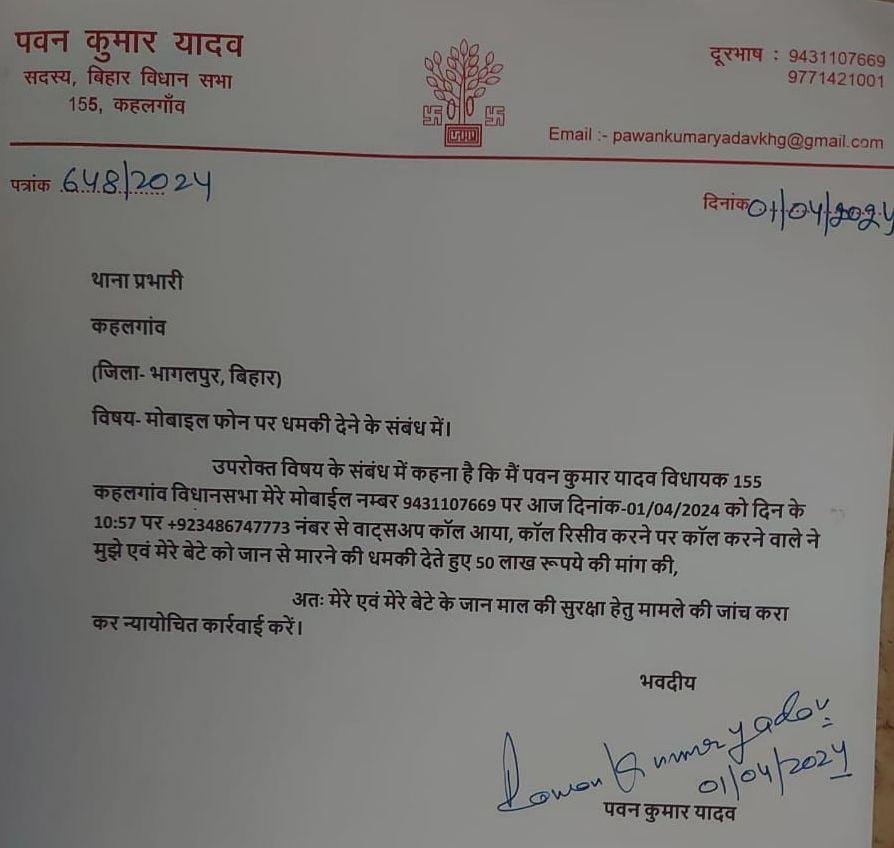 पवन कुमार यादव
सदस्य, बिहार विधान सभा
155, कहलगाँव
दूरभाष : 9431107669
9771421001
Email :- pawankumaryadavkhg@gmail.com
पत्रांक 648/2024
दिनांक 01/04/2024
थाना प्रभारी
कहलगांव
(जिला- भागलपुर, बिहार)
विषय- मोबाइल फोन पर धमकी देने के संबंध में।
उपरोक्त विषय के संबंध में कहना है कि मैं पवन कुमार यादव विधायक 155
कहलगांव विधानसभा मेरे मोबाईल नम्बर 9431107669 पर आज दिनांक-01/04/2024 को दिन के
10:57 पर +923486747773 नंबर से वाट्सअप कॉल आया, कॉल रिसीव करने पर कॉल करने वाले ने
मुझे एवं मेरे बेटे को जान से मारने की धमकी देते हुए 50 लाख रूपये की मांग की,
अतः मेरे एवं मेरे बेटे के जान माल की सुरक्षा हेतु मामले की जांच करा
कर न्यायोचित कार्रवाई करें।
भवदीय
Pawan Kumar yadav
01/04/2024
पवन कुमार यादव